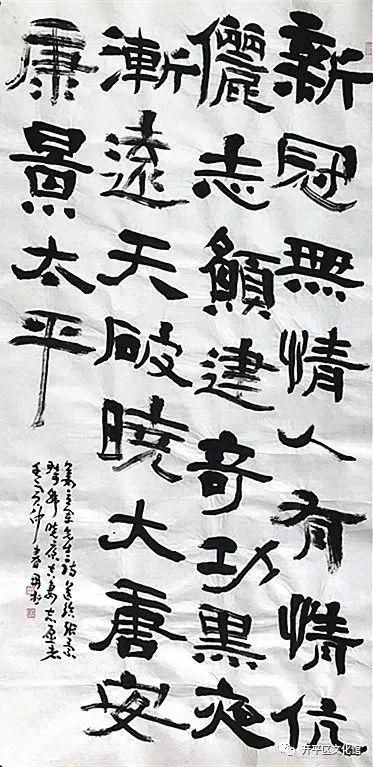 新冠無情人有情伉
儷志願建奇功黑夜
漸遠天破曉大唐安
康景太平
仲春
开平区文化馆